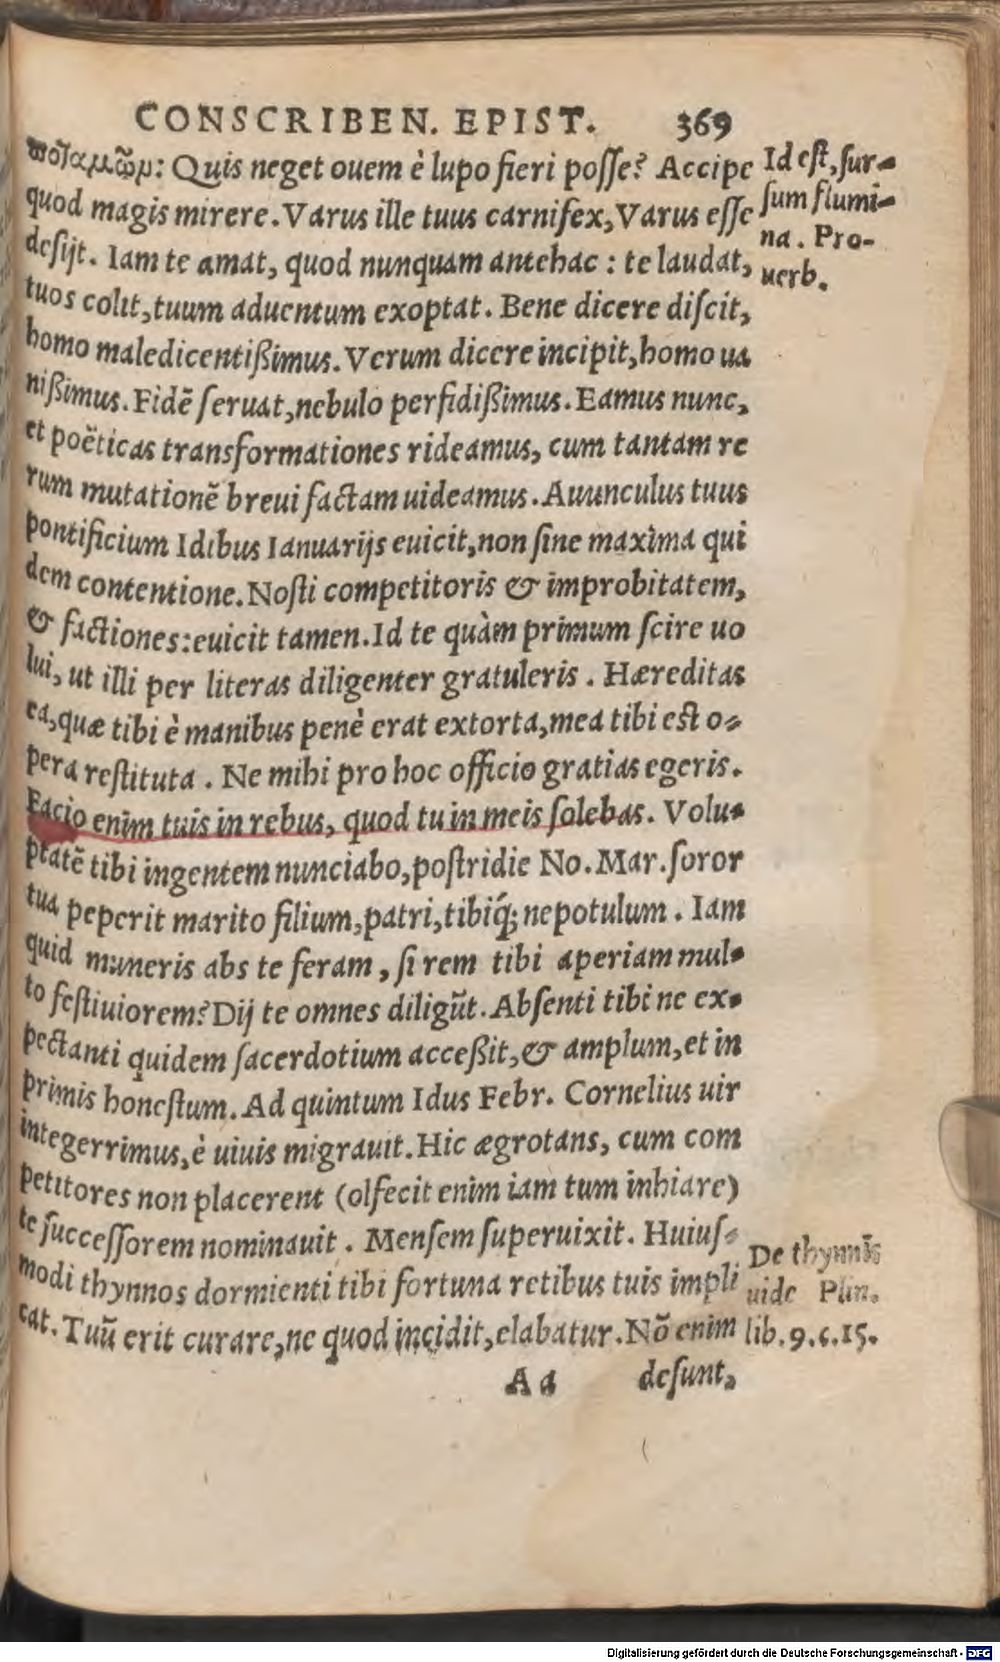 CONSCRIBEN. EPIST. 369
ποταμῶν: Quis neget ouem è lupo fieri posse? Accipe
quod magis mirere. Varus ille tuus carnifex, Varus esse
desijt. Iam te amat, quod nunquam antehac : te laudat,
tuos colit, tuum aduentum exoptat. Bene dicere discit,
homo maledicentißimus. Verum dicere incipit, homo ua
nißimus. Fidē seruat, nebulo perfidißimus. Eamus nunc,
et poëticas transformationes rideamus, cum tantam re
rum mutationē breui factam uideamus. Auunculus tuus
pontificium Idibus Ianuarijs euicit, non sine maxima qui
dem contentione. Nosti competitoris & improbitatem,
& factiones: euicit tamen. Id te quàm primum scire uo
lui, ut illi per literas diligenter gratuleris . Hæreditas
ea, quæ tibi è manibus penè erat extorta, mea tibi est o-
pera restituta . Ne mihi pro hoc officio gratias egeris.
Facio enim tuis in rebus, quod tu in meis solebas. Volu-
ptatē tibi ingentem nunciabo, postridie No. Mar. soror
tua peperit marito filium, patri, tibiq́; nepotulum . Iam
quid muneris abs te feram , si rem tibi aperiam mul-
to festiuiorem? Dij te omnes diligūt. Absenti tibi ne ex-
pectanti quidem sacerdotium acceßit, & amplum, et in
primis honestum. Ad quintum Idus Febr. Cornelius uir
integerrimus, è uiuis migrauit. Hic ægrotans, cum com
petitores non placerent (olfecit enim iam tum inhiare)
te successorem nominauit . Mensem superuixit. Huius-
modi thynnos dormienti tibi fortuna retibus tuis impli
cat. Tuū erit curare, ne quod incidit, elabatur. Nō enim
Aa desunt,
Id est, sur-
sum flumi-
na. Pro-
uerb.
De thynnis
uide Plin.
lib. 9. c. 15.
Digitalisierung gefördert durch die Deutsche Forschungsgemeinschaft - DFG